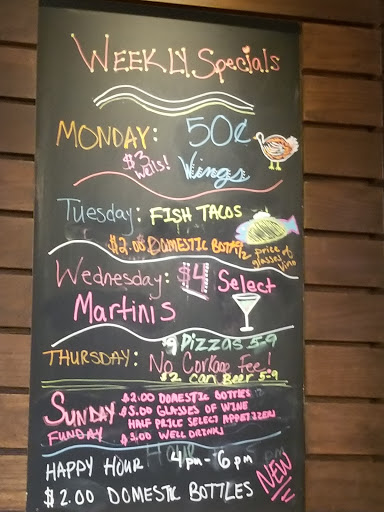 WEEKLY Specials
MONDAY: 50¢
$3 Wells! Wings
Tuesday: FISH TACOS
$2.00 DOMESTIC BOTTles 1/2 price glasses of vino
Wednesday: $4 Select
Martinis
$9 Pizzas 5-9
THURSDAY: No Corkage Fee!
$2 can Beer 5-9
SUNDAY FUNDAY
$2.00 DOMESTIC BOTTLES
$5.00 GLASSES OF WINE
HALF PRICE SELECT APPETIZER
$3.00 WELL DRINKS
HAPPY HOUR 4pm - 6pm
$2.00 DOMESTIC BOTTLES NEW